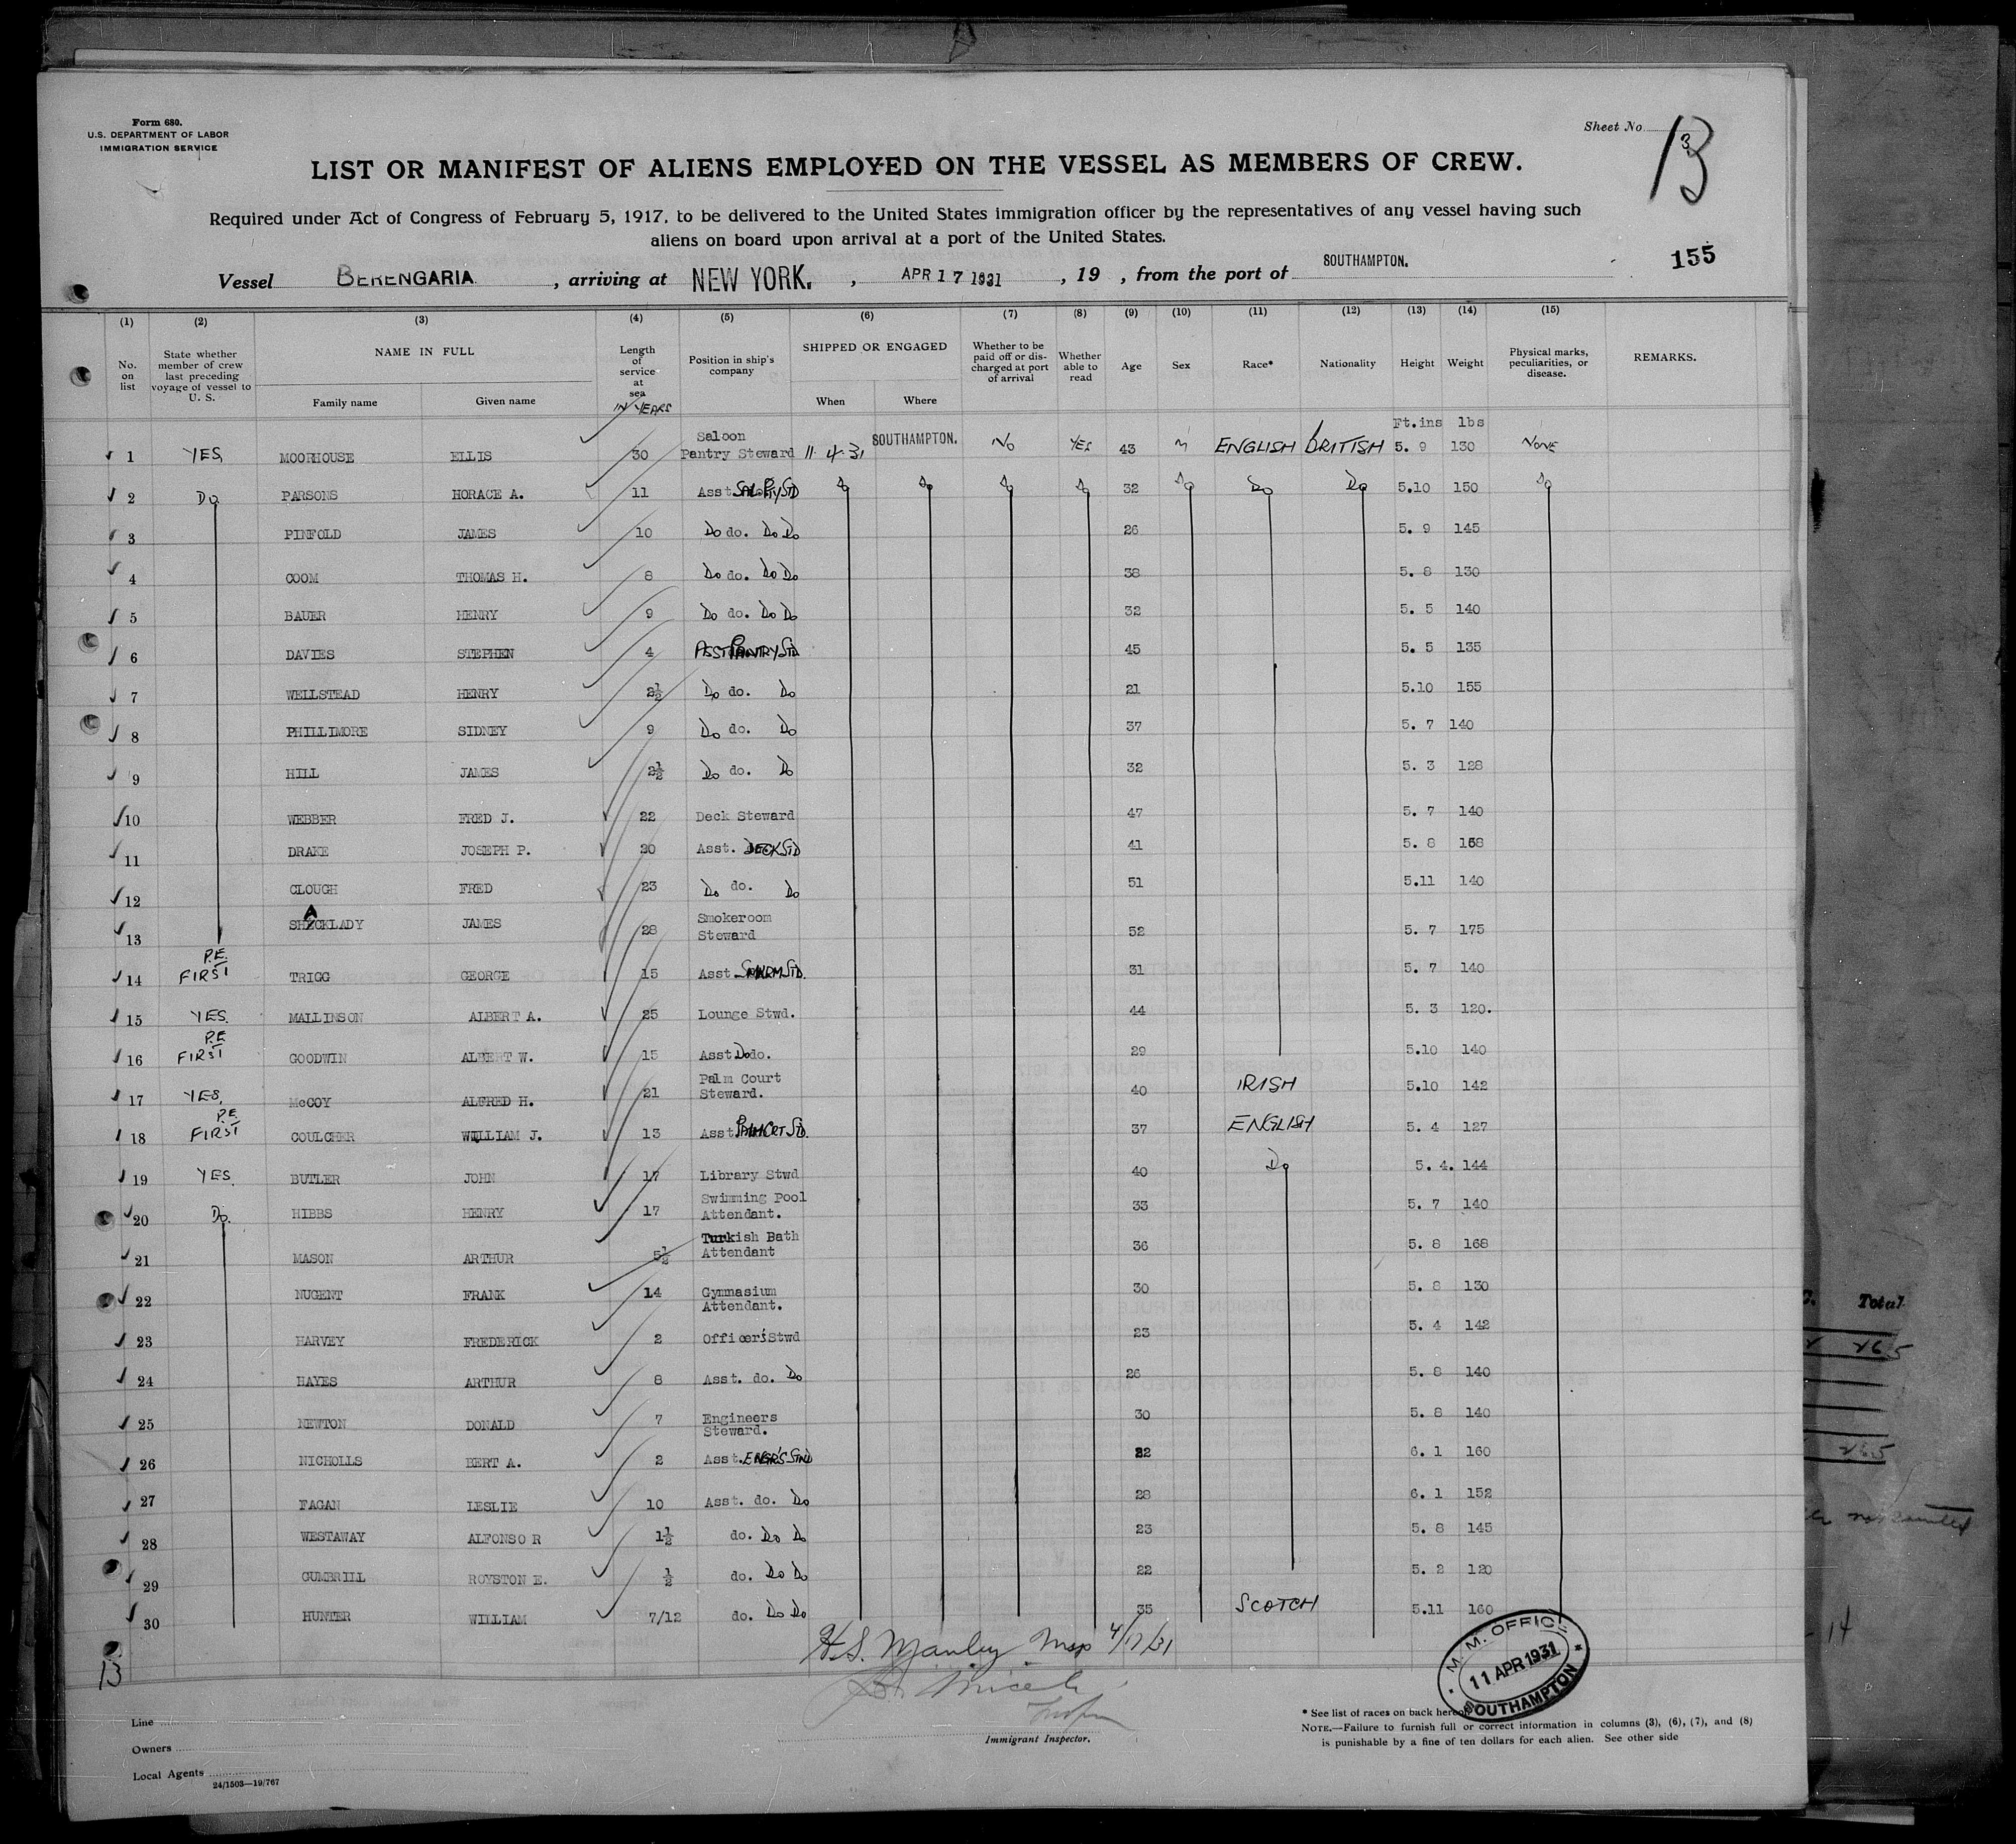 Form 680.
U.S. DEPARTMENT OF LABOR
IMMIGRATION SERVICE
Sheet No. 13
3
LIST OR MANIFEST OF ALIENS EMPLOYED ON THE VESSEL AS MEMBERS OF CREW.
Required under Act of Congress of February 5, 1917, to be delivered to the United States immigration officer by the representatives of any vessel having such
aliens on board upon arrival at a port of the United States.
155
Vessel BERENGARIA , arriving at NEW YORK. , APR 17 1931 , 19 , from the port of SOUTHAMPTON.
(1) (2) (3) (4) (5) (6) (7) (8) (9) (10) (11) (12) (13) (14) (15)
No. on list State whether member of crew last preceding voyage of vessel to U. S. NAME IN FULL Family name Given name Length of service at sea IN YEARS Position in ship's company SHIPPED OR ENGAGED When Where Whether to be paid off or discharged at port of arrival Whether able to read Age Sex Race* Nationality Height Weight Physical marks, peculiarities, or disease. REMARKS.
Ft.ins lbs
1 YES MOORHOUSE ELLIS 30 Saloon Pantry Steward 11.4.31 SOUTHAMPTON. NO YES 43 M ENGLISH BRITISH 5. 9 130 NONE
2 Do PARSONS HORACE A. 11 Asst SAL PTY STD Do Do Do Do 32 Do Do Do 5.10 150 Do
3 PINFOLD JAMES 10 Do do. Do Do 26 5. 9 145
4 COOM THOMAS H. 8 Do do. Do Do 38 5. 8 130
5 BAUER HENRY 9 Do do. Do Do 32 5. 5 140
6 DAVIES STEPHEN 4 ASST PANTRY STD 45 5. 5 135
7 WELLSTEAD HENRY 2½ Do do. Do 21 5.10 155
8 PHILLIMORE SIDNEY 9 Do do. Do 37 5. 7 140
9 HILL JAMES 2½ Do do. Do 32 5. 3 128
10 WEBBER FRED J. 22 Deck Steward 47 5. 7 140
11 DRAKE JOSEPH P. 20 Asst. DECK STD 41 5. 8 168
12 CLOUGH FRED 23 Do do. Do 51 5.11 140
13 SHACKLADY JAMES 28 Smokeroom Steward 52 5. 7 175
14 P.E. FIRST TRIGG GEORGE 15 Asst SMKRM STD. 31 5. 7 140
15 YES. MALLINSON ALBERT A. 25 Lounge Stwd. 44 5. 3 120.
16 P.E. FIRST GOODWIN ALBERT W. 15 Asst Do do. 29 5.10 140
17 YES. McCOY ALFRED H. 21 Palm Court Steward. 40 IRISH 5.10 142
18 P.E. FIRST COULCHER WILLIAM J. 13 Asst PALM CRT STD. 37 ENGLISH 5. 4 127
19 YES. BUTLER JOHN 17 Library Stwd 40 Do 5. 4. 144
20 Do. HIBBS HENRY 17 Swimming Pool Attendant. 33 5. 7 140
21 MASON ARTHUR 5½ Turkish Bath Attendant 36 5. 8 168
22 NUGENT FRANK 14 Gymnasium Attendant. 30 5. 8 130
23 HARVEY FREDERICK 2 Officer's Stwd 23 5. 4 142
24 HAYES ARTHUR 8 Asst. do. Do 26 5. 8 140
25 NEWTON DONALD 7 Engineers Steward. 30 5. 8 140
26 NICHOLLS BERT A. 2 Asst. ENGR'S STWD 22 6. 1 160
27 FAGAN LESLIE 10 Asst. do. Do 28 6. 1 152
28 WESTAWAY ALFONSO R 1½ do. Do Do 23 5. 8 145
29 GUMBRILL ROYSTON E. ½ do. Do Do 22 5. 2 120
30 HUNTER WILLIAM 7/12 do. Do Do 35 SCOTCH 5.11 160
H.S. Manley Insp 4/17/31
13
M. M. OFFICE
11 APR 1931
SOUTHAMPTON
Line
Owners
Local Agents
24/1503—19/767
Immigrant Inspector.
* See list of races on back hereof.
NOTE.—Failure to furnish full or correct information in columns (3), (6), (7), and (8)
is punishable by a fine of ten dollars for each alien. See other side
Total
265
265
14